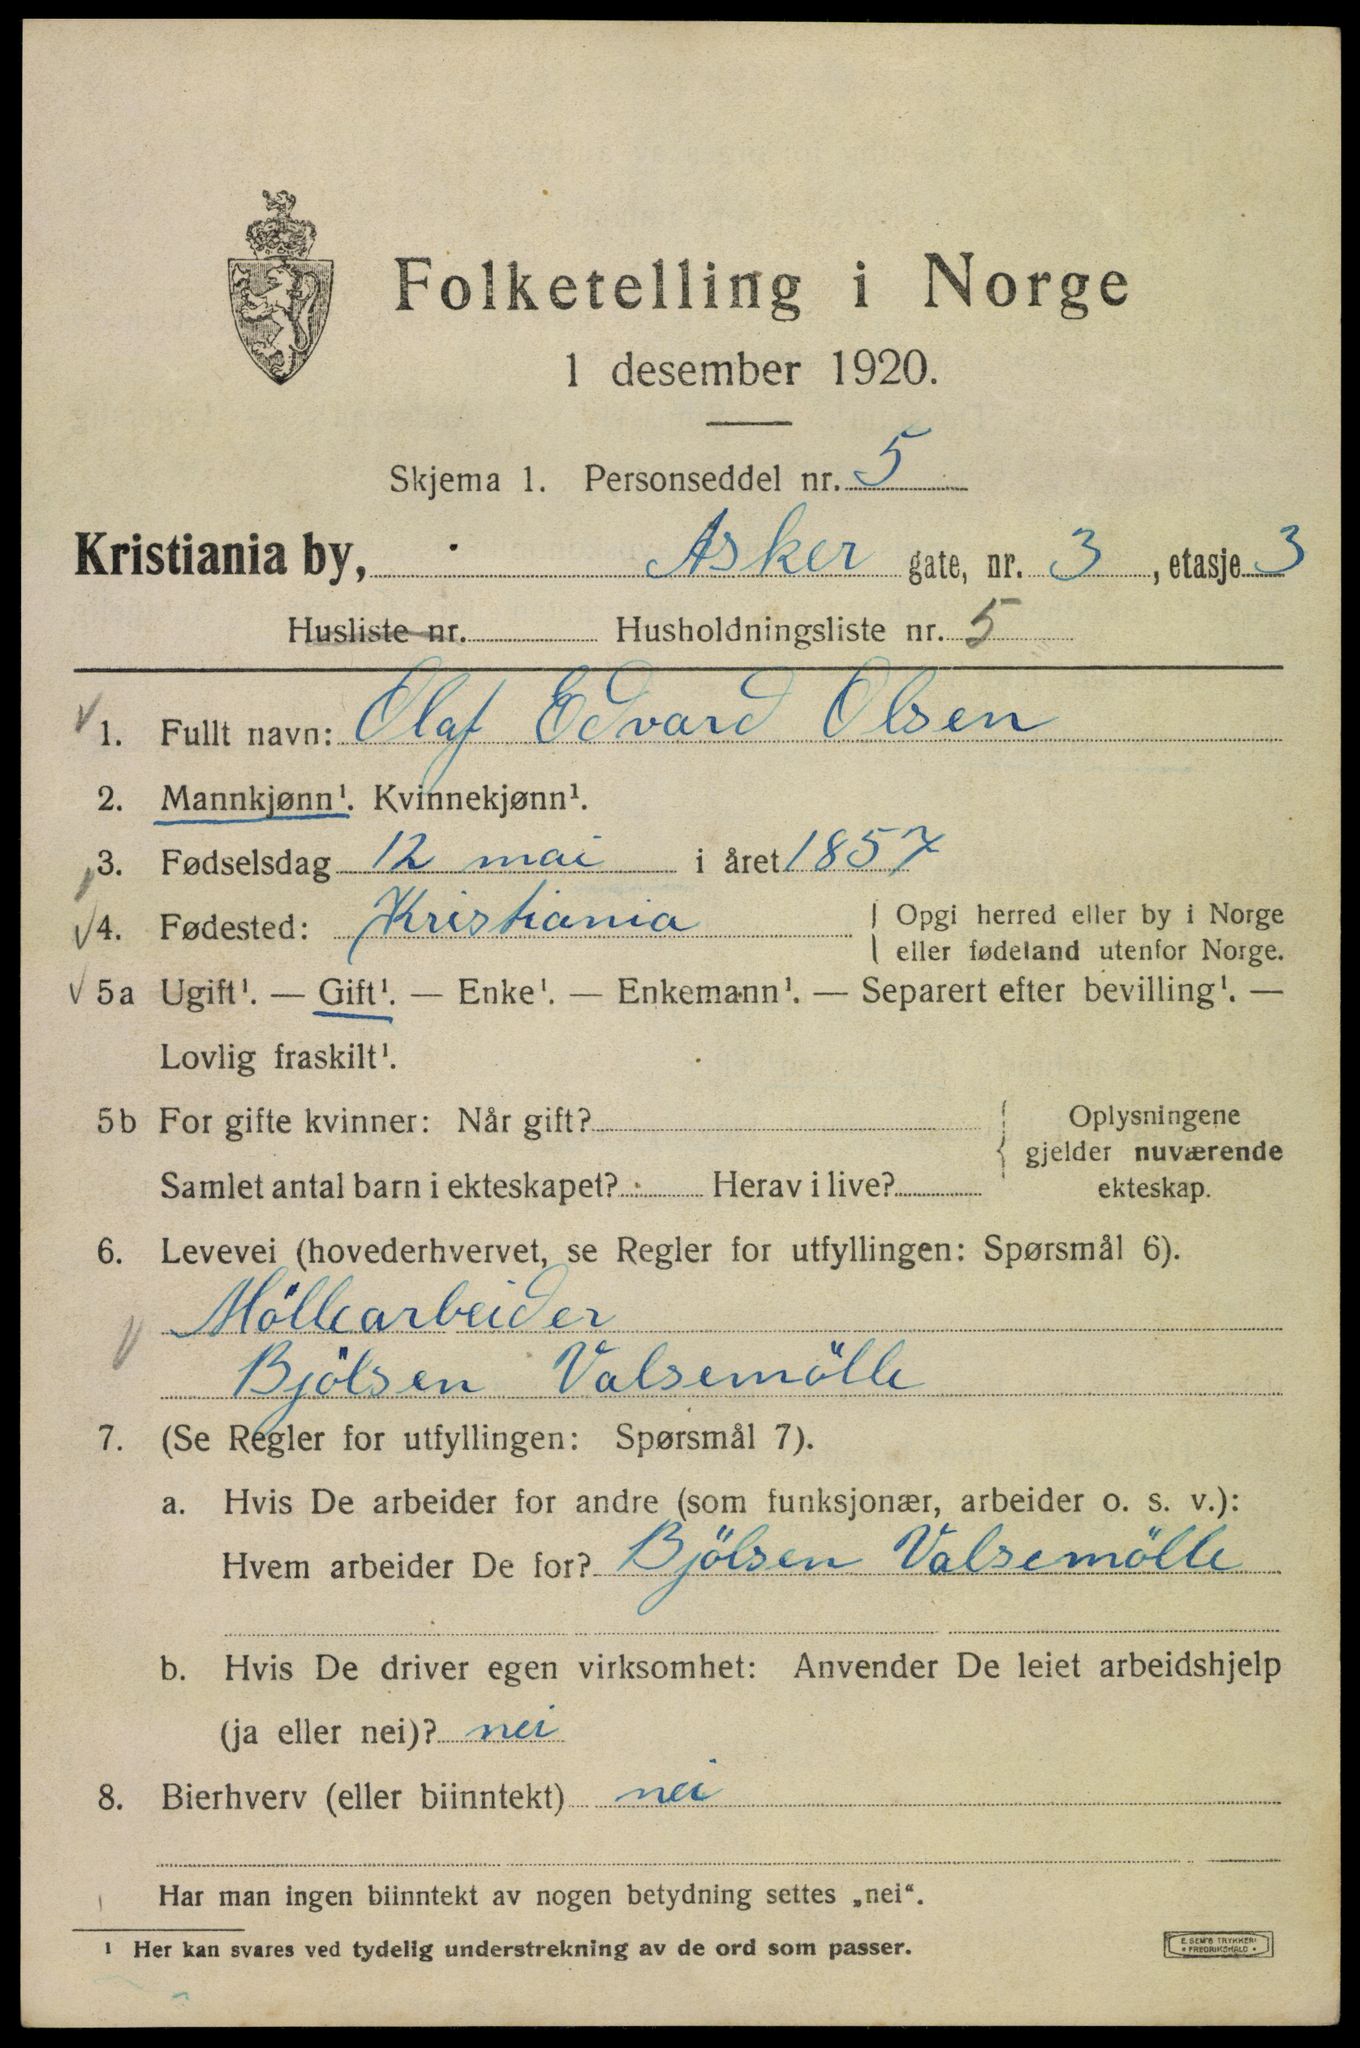 Folketelling i Norge
1 desember 1920.
Skjema 1. Personseddel nr. 5
Kristiania by, Asker gate, nr. 3, etasje 3
Husliste nr. Husholdningsliste nr. 5
1. Fullt navn: Olaf Edvard Olsen
2. Mannkjønn¹. Kvinnekjønn¹.
3. Fødselsdag 12 mai i året 1857
4. Fødested: Kristiania
Opgi herred eller by i Norge
eller fødeland utenfor Norge.
5a Ugift¹. — Gift¹. — Enke¹. — Enkemann¹. — Separert efter bevilling¹. —
Lovlig fraskilt¹.
5b For gifte kvinner: Når gift?
Samlet antal barn i ekteskapet? Herav i live?
Oplysningene
gjelder nuværende
ekteskap.
6. Levevei (hovederhvervet, se Regler for utfyllingen: Spørsmål 6).
Möllearbeider
Bjölsen Valsemölle
7. (Se Regler for utfyllingen: Spørsmål 7).
a. Hvis De arbeider for andre (som funksjonær, arbeider o. s. v.):
Hvem arbeider De for? Bjölsen Valsemölle
b. Hvis De driver egen virksomhet: Anvender De leiet arbeidshjelp
(ja eller nei)? nei
8. Bierhverv (eller biinntekt) nei
Har man ingen biinntekt av nogen betydning settes „nei“.
¹ Her kan svares ved tydelig understrekning av de ord som passer.
E. SEM'S TRYKKERI
• FREDRIKSHALD •